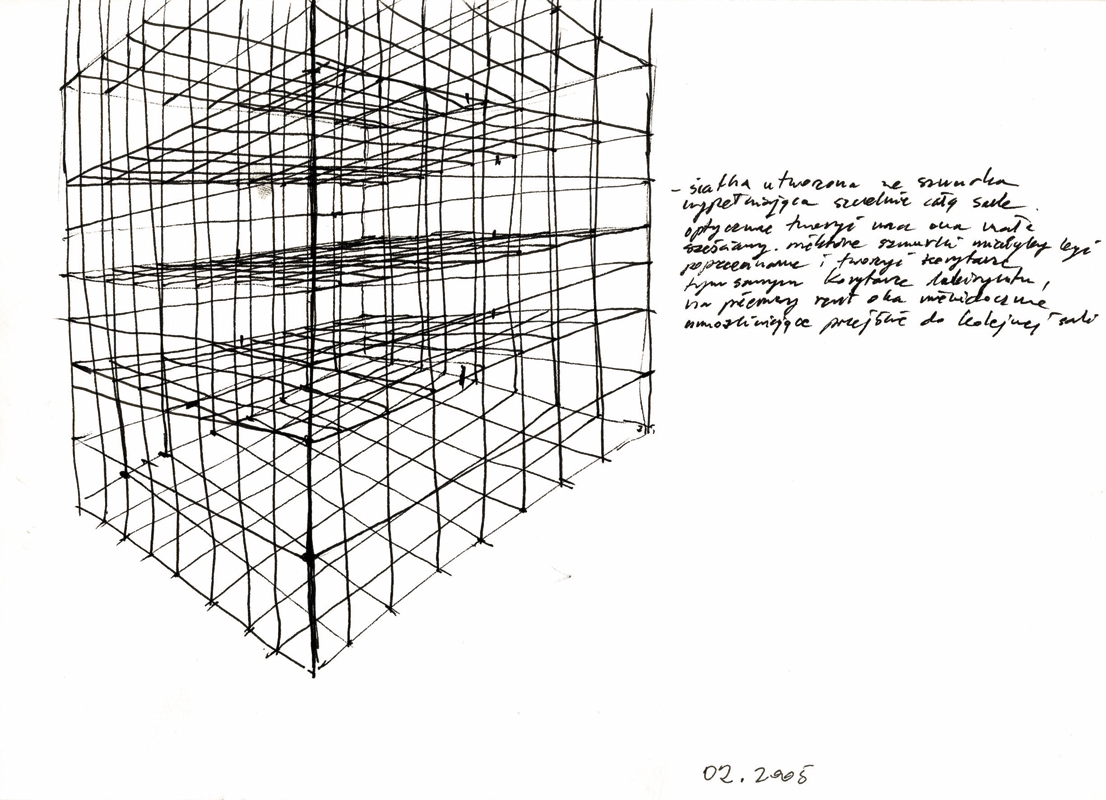 - siatka utworzona ze sznurka
wypełniająca szczelnie całą salę.
optycznie tworzyć ma ona małe
sześciany. niektóre sznurki miałyby być
poprzecinane i tworzyć korytarz
tym samym korytarze labiryntu,
na pierwszy rzut oka niewidoczne
umożliwiające przejście do kolejnej sali
02.2005